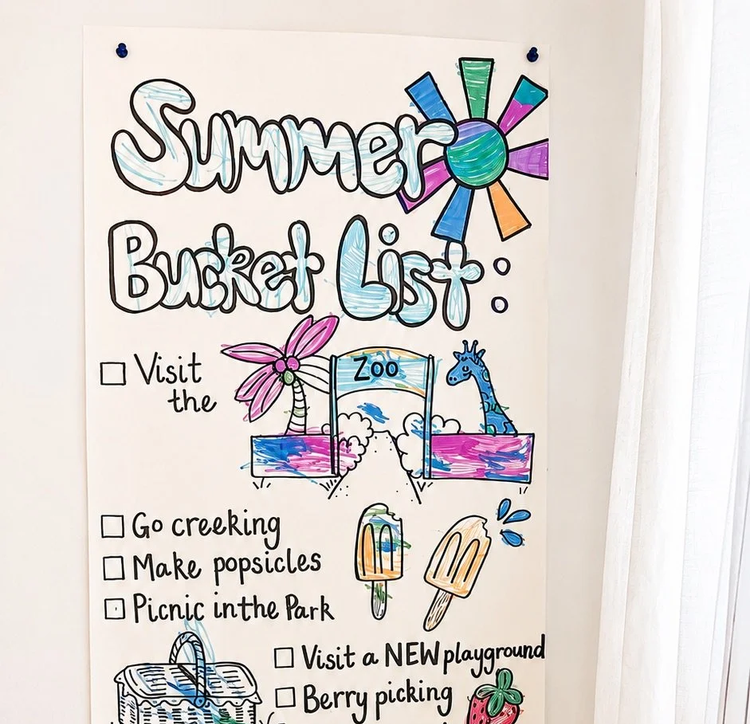 Summer
Bucket List:
Visit
the
Zoo
Go creeking
Make popsicles
Picnic in the Park
Visit a NEW playground
Berry picking